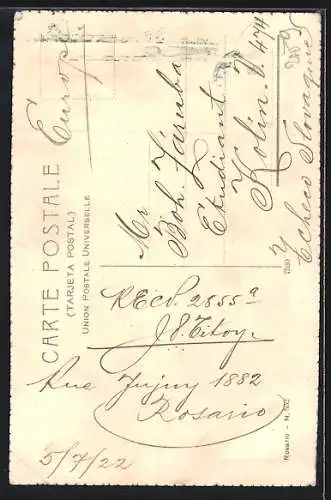 CARTE POSTALE
(TARJETA POSTAL)
UNION POSTALE UNIVERSELLE
Europ
Mr
Boh. Záruba
Étudiant
Kolin. II. 474
Tcheco Slovaquie
RECV. 2855ª
Rue Jujuy 1882
Rosario
5/7/22
Rosario - N.